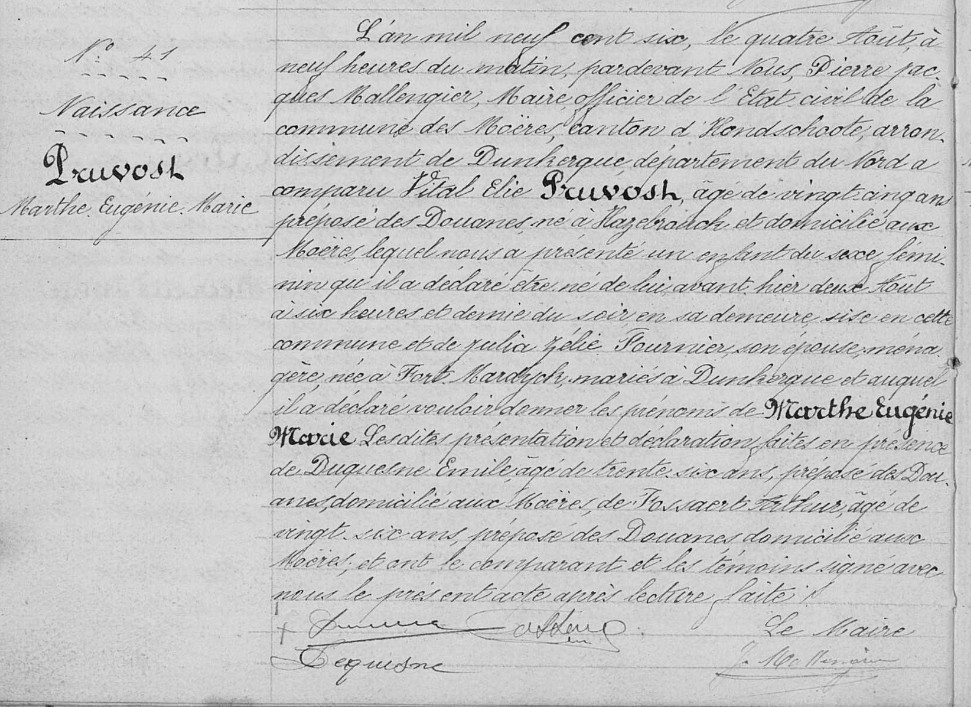 N° 41
Naissance
Pruvost
Marthe Eugénie Marie
L'an mil neuf cent six, le quatre Août, à
neuf heures du matin, pardevant Nous, Pierre Jac-
ques Mallengier, Maire officier de l'Etat civil de la
commune des Moëres, canton d'Hondschoote, arron-
dissement de Dunkerque, département du Nord a
comparu Vital Elie Pruvost, âgé de vingt cinq ans
préposé des Douanes, né à Hazebrouck et domicilié aux
Moëres, lequel nous a présenté un enfant du sexe fémi-
nin qu'il a déclaré être né de lui, avant hier deux Août
à six heures et demie du soir, en sa demeure, sise en cette
commune et de Julia Zélie Fournier, son épouse, mena-
gère, née à Fort-Mardyck, mariés à Dunkerque et auquel
il a déclaré vouloir donner les prénoms de Marthe Eugénie
Marie Lesdites présentation et déclaration faites en présence
de Duquesne Emile, âgé de trente-six ans, préposé des Dou-
anes, domicilié aux Moëres, de Fossaert Arthur, âgé de
vingt-six ans, préposé des Douanes domicilié aux
Moëres; et ont le comparant et les témoins signé avec
nous le présent acte après lecture faite.
Le Maire
Dequesne
J. Mallengier